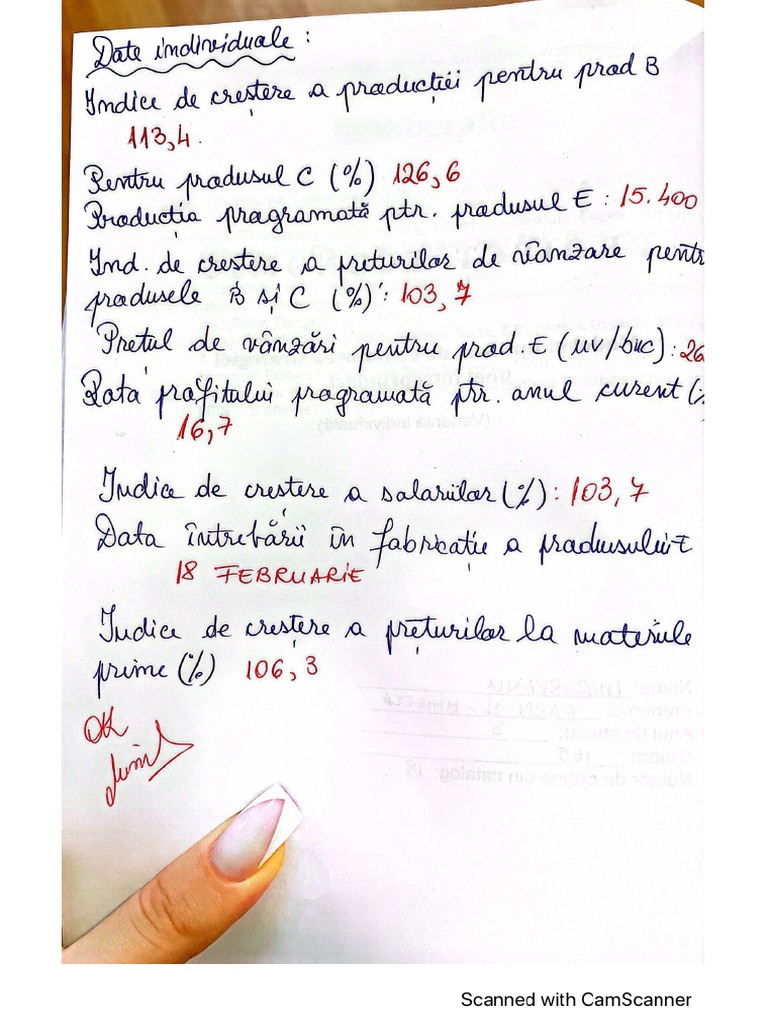 Date individuale :
Indice de creștere a producției pentru prod B
113,4.
Pentru produsul C (%) 126,6
Producția programată ptr. produsul E : 15.400
Ind. de crestere a prețurilor de vânzare pentr
produsele B și C (%) : 103,7
Prețul de vânzări pentru prod. E (uv/buc) : 26
Rata profitului programată ptr. anul curent (%
16,7
Indice de creștere a salariilor (%) : 103,7
Data întrebării în fabricație a produsului E
18 FEBRUARIE
Indice de creștere a prețurilor la materiile
prime (%) 106,3
OK
Scanned with CamScanner